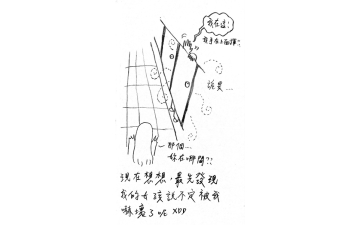 我在這!
我手在上面揮?
詭異....
那個....
妳在哪間?!
現在想想,最先發現
我的女孩說不定被我
嚇壞了吧 XDD